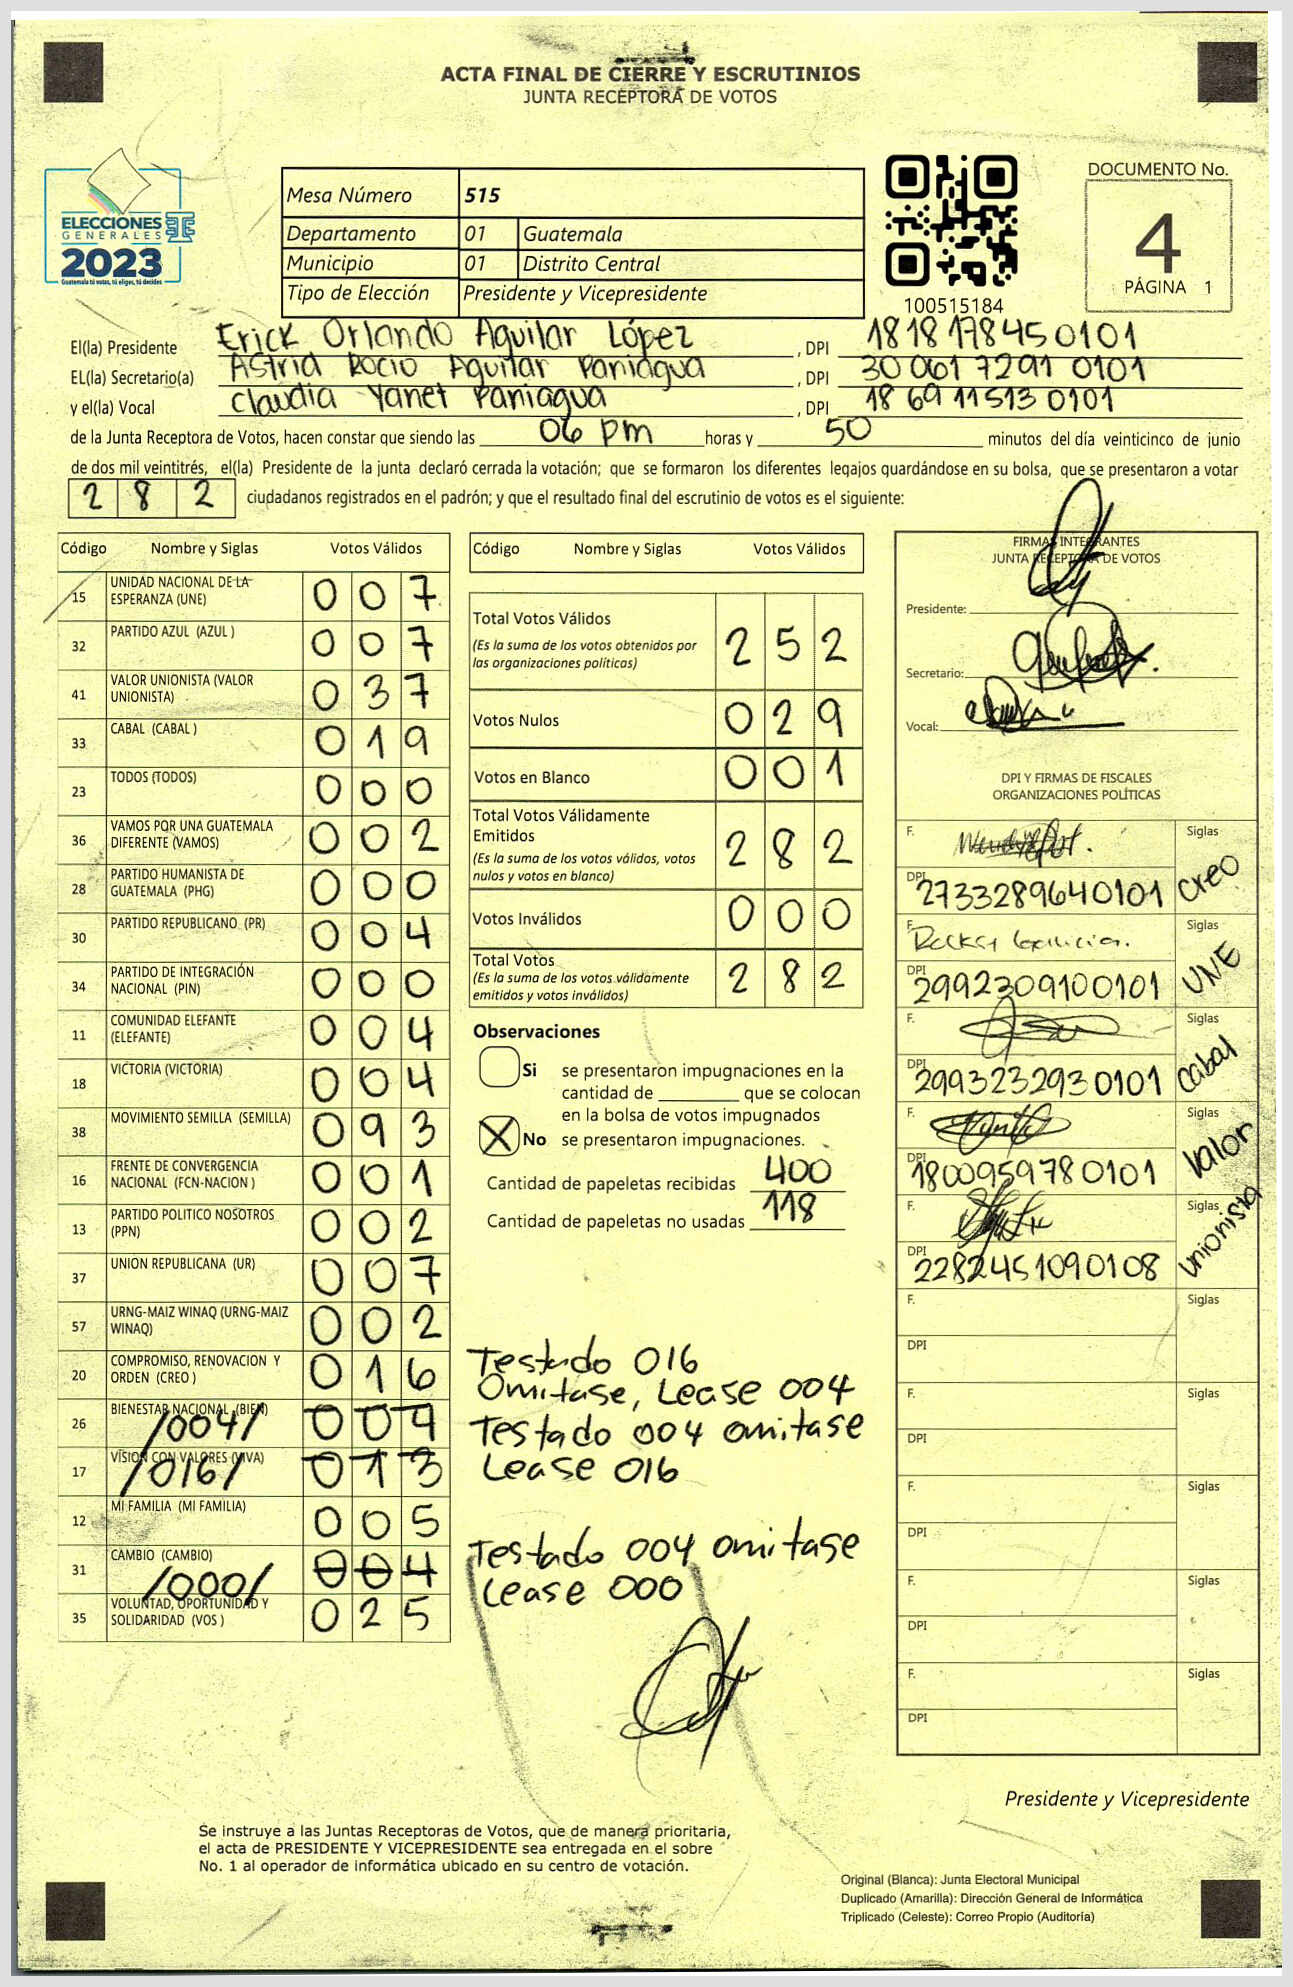 ACTA FINAL DE CIERRE Y ESCRUTINIOS
JUNTA RECEPTORA DE VOTOS
ELECCIONES
GENERALES
2023
Guatemala tú votas, tú eliges, tú decides
Mesa Número 515
Departamento 01 Guatemala
Municipio 01 Distrito Central
Tipo de Elección Presidente y Vicepresidente
100515184
DOCUMENTO No.
4
PÁGINA 1
El(la) Presidente Erick Orlando Aguilar López , DPI 1818178450101
EL(la) Secretario(a) Astrid Rocio Aguilar Paniagua , DPI 3006172910101
y el(la) Vocal Claudia Yanet Paniagua , DPI 1869115130101
de la Junta Receptora de Votos, hacen constar que siendo las 06 pm horas y 50 minutos del día veinticinco de junio
de dos mil veintitrés, el(la) Presidente de la junta declaró cerrada la votación; que se formaron los diferentes legajos quardándose en su bolsa, que se presentaron a votar
282 ciudadanos registrados en el padrón; y que el resultado final del escrutinio de votos es el siguiente:
Código Nombre y Siglas Votos Válidos
15 UNIDAD NACIONAL DE LA ESPERANZA (UNE) 007
32 PARTIDO AZUL (AZUL ) 007
41 VALOR UNIONISTA (VALOR UNIONISTA) 037
33 CABAL (CABAL ) 019
23 TODOS (TODOS) 000
36 VAMOS POR UNA GUATEMALA DIFERENTE (VAMOS) 002
28 PARTIDO HUMANISTA DE GUATEMALA (PHG) 000
30 PARTIDO REPUBLICANO (PR) 004
34 PARTIDO DE INTEGRACIÓN NACIONAL (PIN) 000
11 COMUNIDAD ELEFANTE (ELEFANTE) 004
18 VICTORIA (VICTORIA) 004
38 MOVIMIENTO SEMILLA (SEMILLA) 093
16 FRENTE DE CONVERGENCIA NACIONAL (FCN-NACION ) 001
13 PARTIDO POLITICO NOSOTROS (PPN) 002
37 UNION REPUBLICANA (UR) 007
57 URNG-MAIZ WINAQ (URNG-MAIZ WINAQ) 002
20 COMPROMISO, RENOVACION Y ORDEN (CREO ) 016
26 BIENESTAR NACIONAL (BIEN) /004/
17 VISION CON VALORES (VIVA) /016/ 013
12 MI FAMILIA (MI FAMILIA) 005
31 CAMBIO (CAMBIO) /000/ 004
35 VOLUNTAD, OPORTUNIDAD Y SOLIDARIDAD (VOS ) 025
Código Nombre y Siglas Votos Válidos
Total Votos Válidos 252
(Es la suma de los votos obtenidos por
las organizaciones políticas)
Votos Nulos 029
Votos en Blanco 001
Total Votos Válidamente
Emitidos 282
(Es la suma de los votos válidos, votos
nulos y votos en blanco)
Votos Inválidos 000
Total Votos 282
(Es la suma de los votos válidamente
emitidos y votos inválidos)
Observaciones
Si se presentaron impugnaciones en la
cantidad de ________ que se colocan
en la bolsa de votos impugnados
X No se presentaron impugnaciones.
Cantidad de papeletas recibidas 400
Cantidad de papeletas no usadas 118
Testado 016
Omitase, Lease 004
Testado 004 omitase
Lease 016
Testado 004 omitase
Lease 000
FIRMAS INTEGRANTES
JUNTA RECEPTORA DE VOTOS
Presidente:
Secretario:
Vocal:
DPI Y FIRMAS DE FISCALES
ORGANIZACIONES POLÍTICAS
F. Siglas creo
DPI 2733289640101
F. Siglas UNE
DPI 2992309100101
F. Siglas cabal
DPI 2993232930101
F. Siglas Valor
DPI 1800959780101
F. Siglas unionista
DPI 2282451090108
F. Siglas
DPI
F. Siglas
DPI
F. Siglas
DPI
F. Siglas
DPI
F. Siglas
DPI
Presidente y Vicepresidente
Se instruye a las Juntas Receptoras de Votos, que de manera prioritaria,
el acta de PRESIDENTE Y VICEPRESIDENTE sea entregada en el sobre
No. 1 al operador de informática ubicado en su centro de votación.
Original (Blanca): Junta Electoral Municipal
Duplicado (Amarilla): Dirección General de Informática
Triplicado (Celeste): Correo Propio (Auditoría)